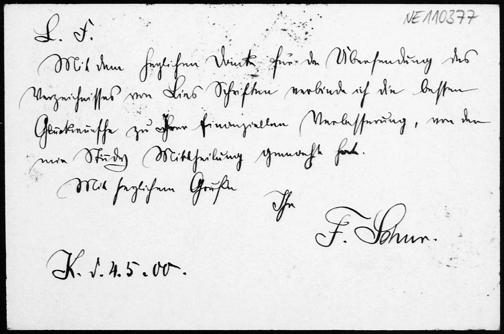 NE110377
L. F.
Mit dem herzlichen Dank für die Übersendung des
Verzeichnisses von Lies Schriften verbinde ich die besten
Glückwünsche zu Ihrer finanziellen Verbesserung, von der
mir Study Mittheilung gemacht hat.
Mit herzlichem Gruße
Ihr
F. Schur.
K. d. 4. 5. 00.